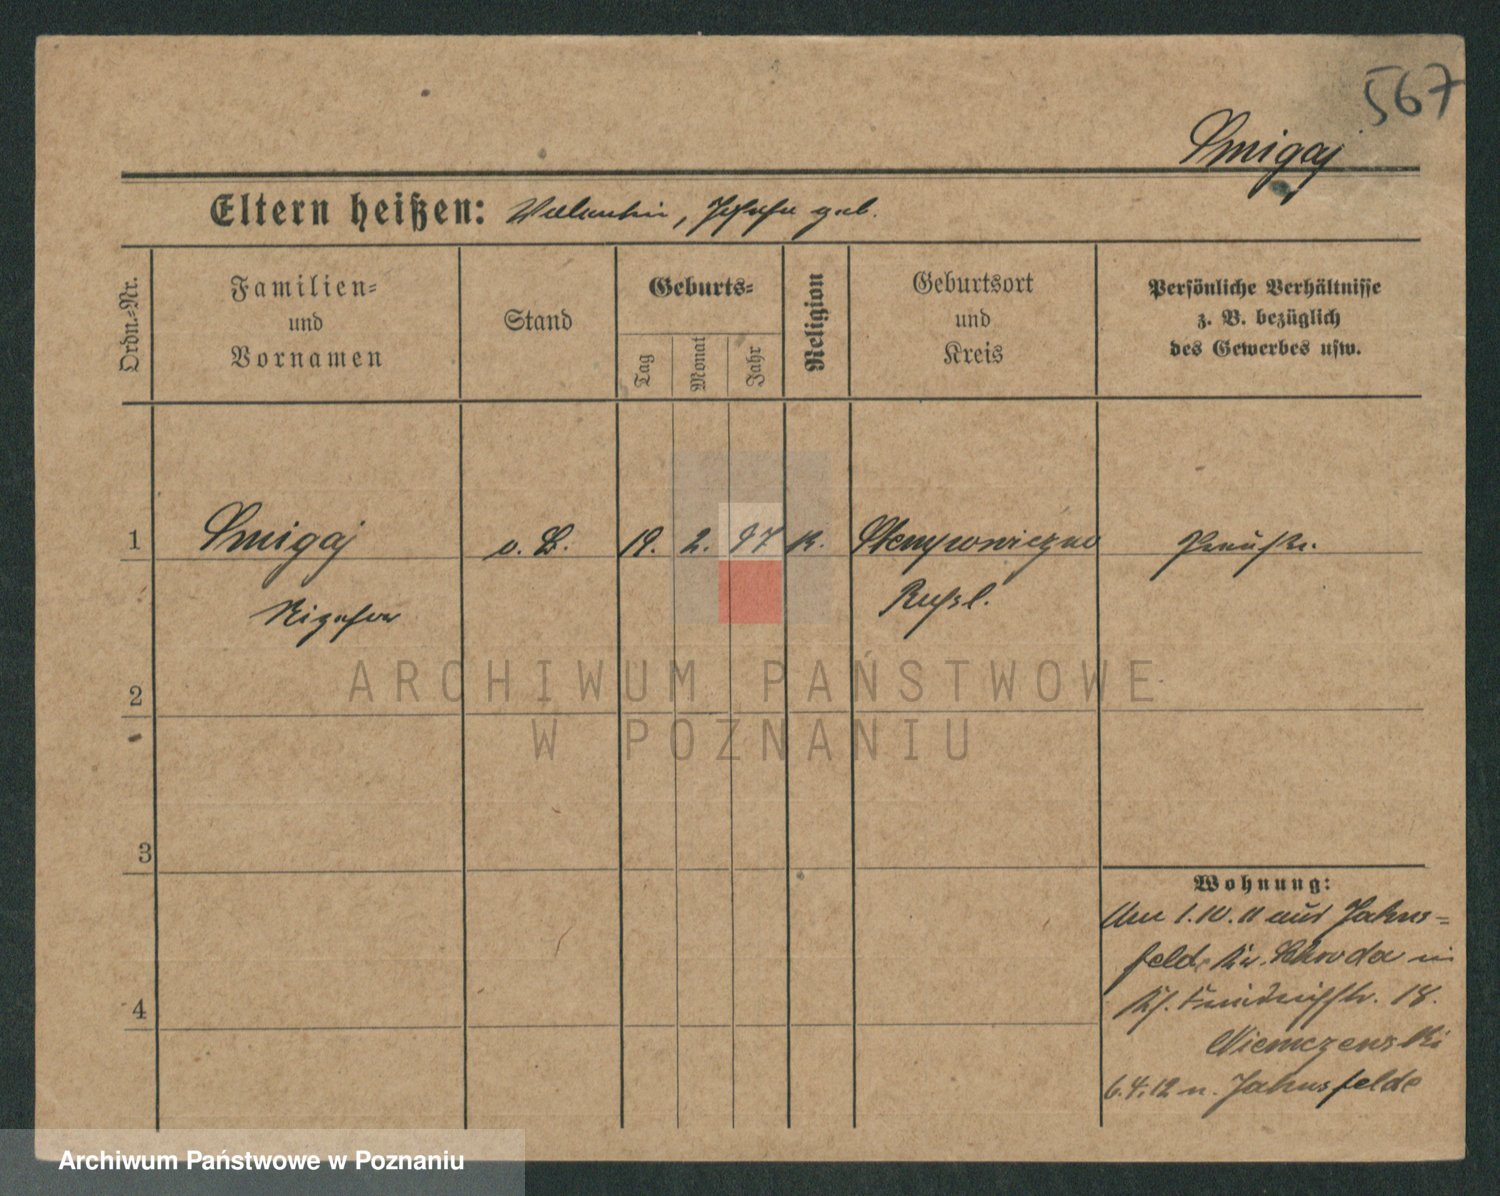 567
Smigaj
Eltern heißen: Valentin, Josefa geb.
Ordn.-Nr.
Familien-
und
Vornamen
Stand
Geburts-
Tag
Monat
Jahr
Religion
Geburtsort
und
Kreis
Persönliche Verhältnisse
z. B. bezüglich
des Gewerbes usw.
1 Smigaj o. B. 19. 2. 97 k. Preuße.
Russl.
2
3
4
Wohnung:
1.10.11 aus Jahns-
felde Kr. Schroda in
18.
Niemczewski
6.4.12 n. Jahnsfelde
ARCHIWUM PAŃSTWOWE
W POZNANIU
Archiwum Państwowe w Poznaniu